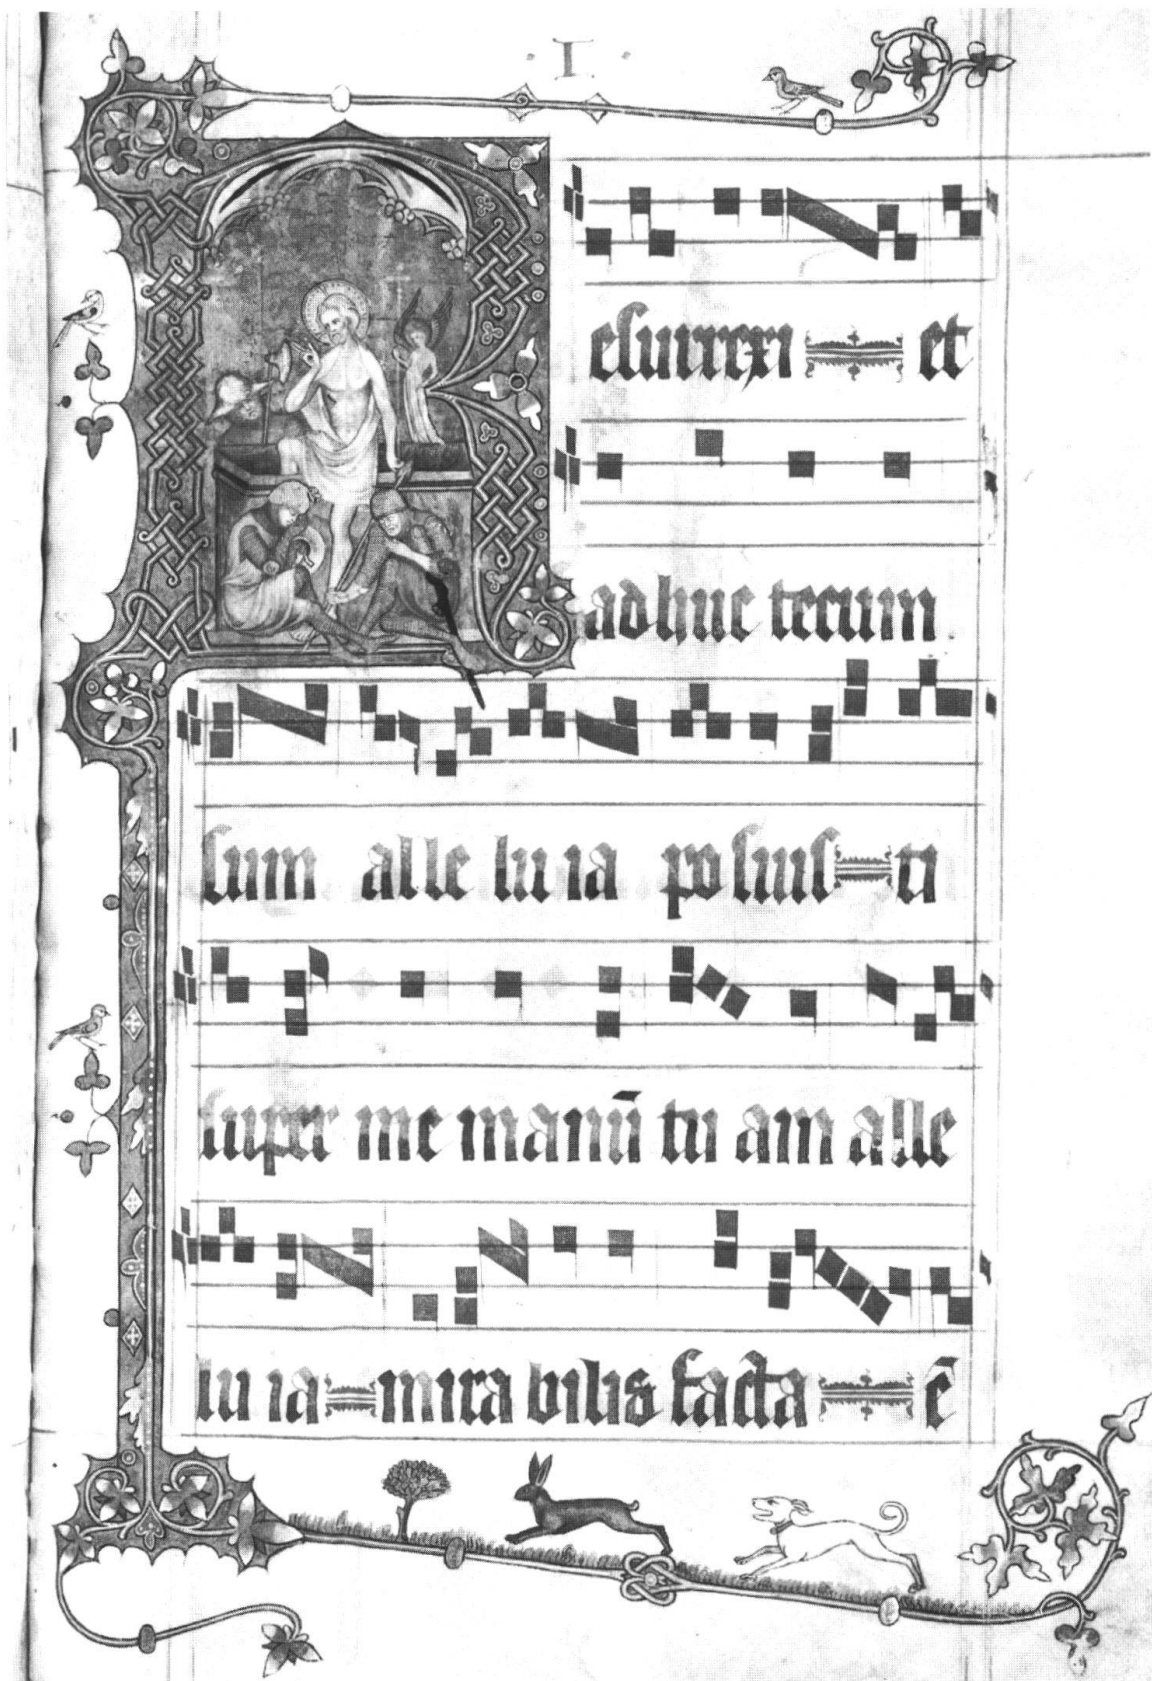 · I ·
Resurrexi et
adhuc tecum
sum alle lu ia po suis ti
super me manū tu am alle
lu ia mira bilis facta ē